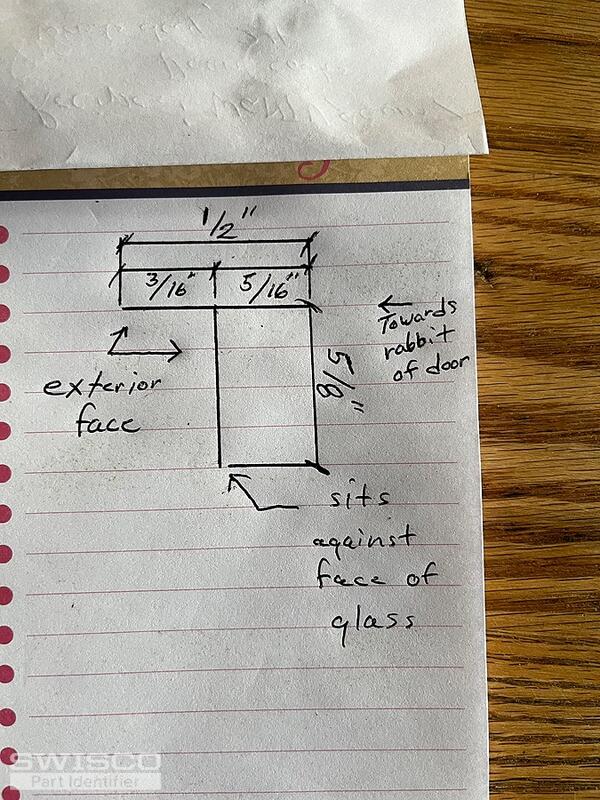 1/2"
3/16" 5/16"
Towards
rabbit
of door
exterior
face
5/8"
sits
against
face of
glass
SWISCO
Part Identifier